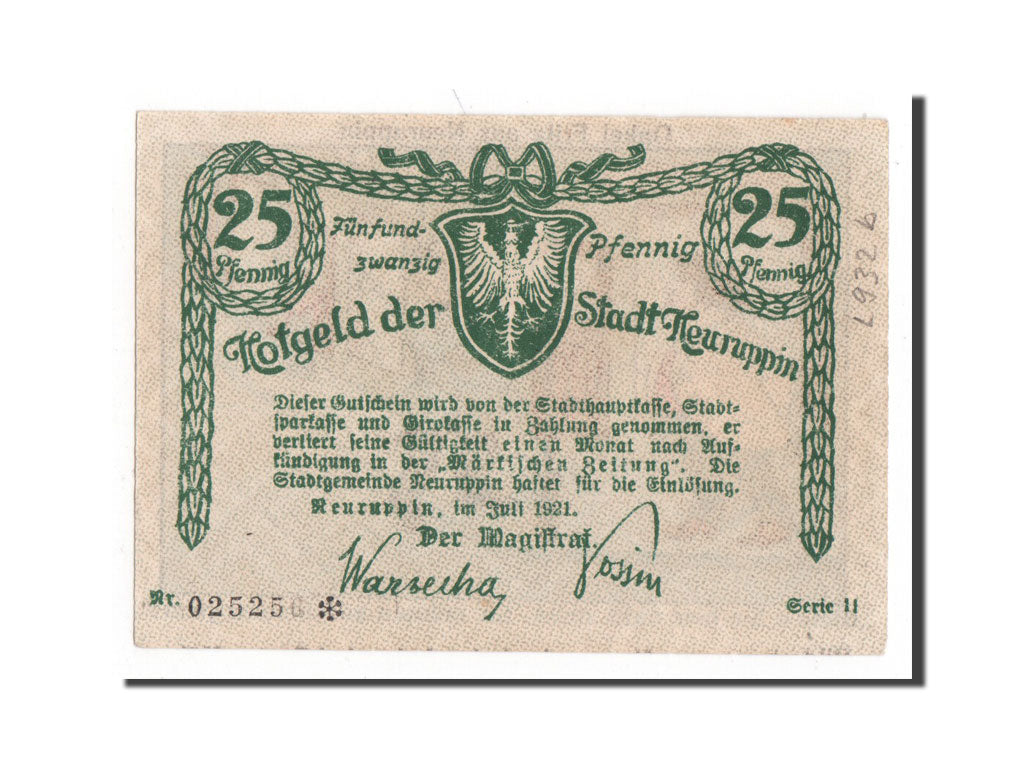 25 Pfennig
Fünfund-
zwanzig
Pfennig
25 Pfennig
Notgeld der Stadt Neuruppin
Dieser Gutschein wird von der Stadthauptkasse, Stadt-
sparkasse und Girokasse in Zahlung genommen, er
verliert seine Gültigkeit einen Monat nach Auf-
kündigung in der „Märkischen Zeitung“. Die
Stadtgemeinde Neuruppin haftet für die Einlösung.
Neuruppin, im Juli 1921.
Der Magistrat.
Warzecha,
Nr. 025256 *
Serie II